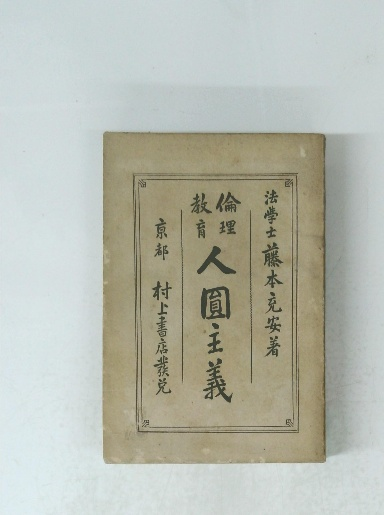 法學士 藤本充安著
倫理教育 人圓主義
京都 村上書店發兌